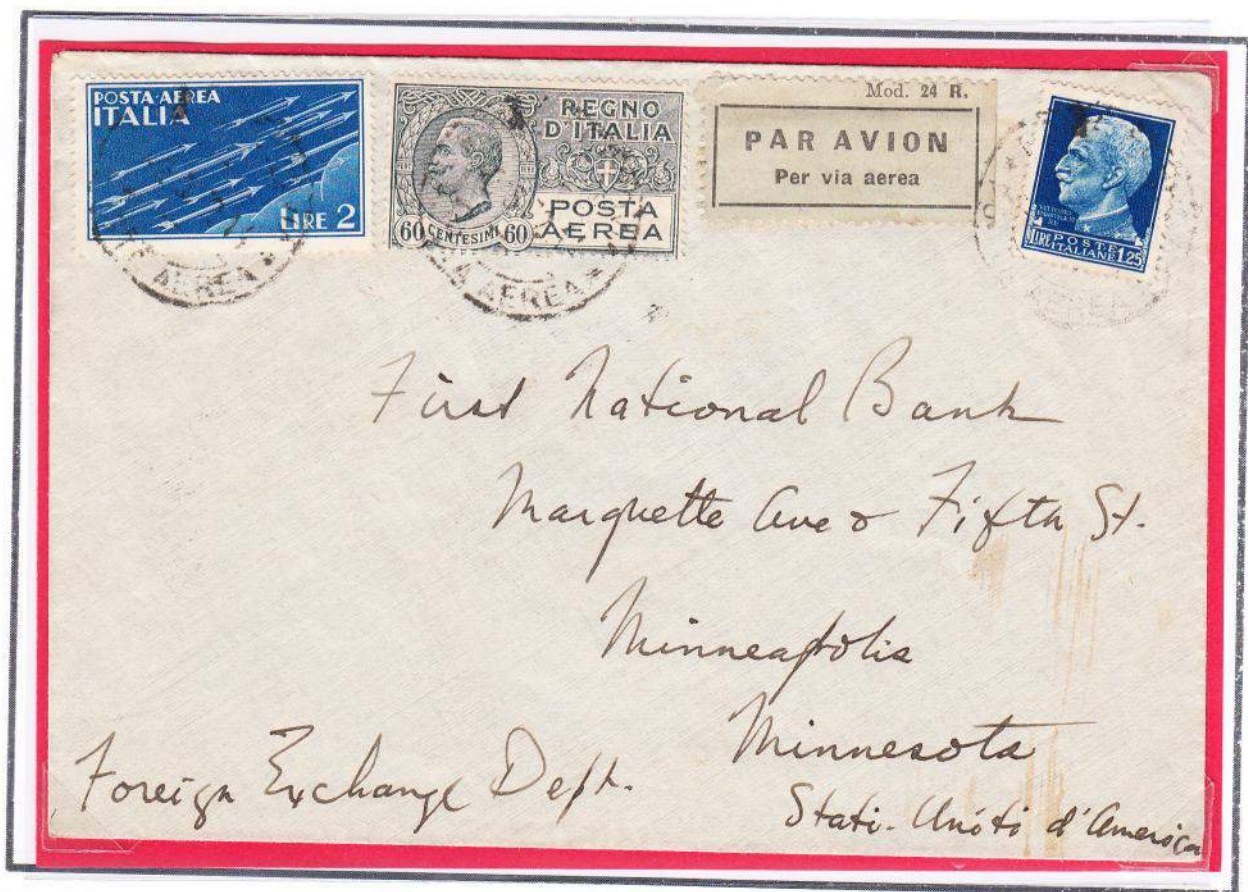 POSTA AEREA
ITALIA
LIRE 2
REGNO
D'ITALIA
POSTA
AEREA
60 CENTESIMI 60
Mod. 24 R.
PAR AVION
Per via aerea
POSTE
LIRE ITALIANE 1.25
AEREA
AEREA
AEREA
First National Bank
Marquette Ave & Fifth St.
Minneapolis
Minnesota
Stati-Uniti d'America
Foreign Exchange Dept.